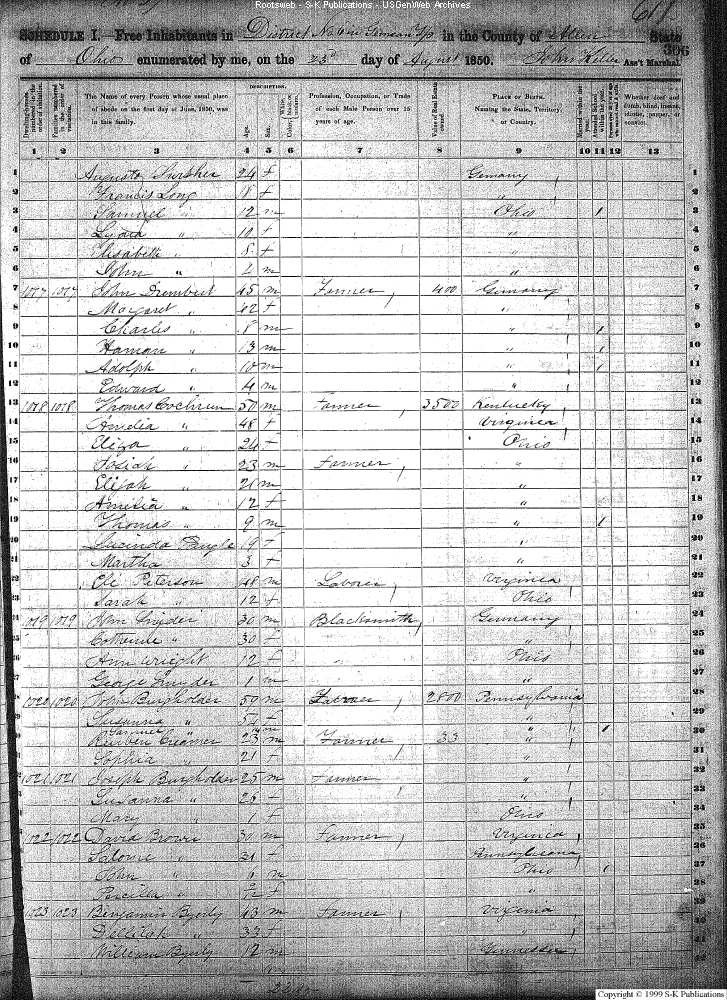 Rootsweb - S-K Publications - USGenWeb Archives
611
SCHEDULE I.—Free Inhabitants in District No in German Tp in the County of Allen State
of Ohio enumerated by me, on the 23d day of August 1850. John Keller Ass't Marshal. 306
Dwelling-houses numbered in the order of visitation.
Families numbered in the order of visitation.
The Name of every Person whose usual place of abode on the first day of June, 1850, was in this family.
DESCRIPTION.
Age.
Sex.
Color
Profession, Occupation, or Trade of each Male Person over 15 years of age.
Value of Real Estate owned.
PLACE OF BIRTH. Naming the State, Territory, or Country.
Whether deaf and dumb, blind, insane, idiotic, pauper, or convict.
1 2 3 4 5 6 7 8 9 10 11 12 13
1 Augusta 24 f Germany 1
2 Francis Long 18 f " 2
3 Samuel " 12 m Ohio 1 3
4 Lydia " 10 f " 4
5 Elisabeth " 8 f " 5
6 John " 2 m " 6
7 1017 1017 John 45 m Farmer 400 Germany 7
8 Margaret " 42 f " 8
9 Charles " 18 m " 1 9
10 Haman " 13 m " 1 10
11 Adolph " 10 m " 1 11
12 Edward " 4 m " 12
13 1018 1018 Thomas Cochrun 50 m Farmer 3500 Kentucky 13
14 Amelia " 48 f Virginia 14
15 Eliza " 24 f Ohio 15
16 Josiah " 23 m Farmer " 16
17 Elijah " 21 m " 17
18 Amelia " 12 f " 18
19 Thomas " 9 m " 1 19
20 Lucinda Pangle 19 f " 20
21 Martha " 3 f " 21
22 Ole Peterson 48 m Laborer Virginia 22
23 Sarah " 12 f Ohio 23
24 1019 1019 John Snyder 30 m Blacksmith Germany 24
25 Catherine " 30 f " 25
26 Ann Wright 12 f Ohio 26
27 George Snyder 1 m " 27
28 1020 1020 John Burgholder 59 m Farmer 2800 Pennsylvania 28
29 Susanna " 57 f " 29
30 Samuel " 14 m " 1 30
Reuben Creamer 23 m Farmer 33 "
Sophia " 21 f "
1021 1021 Joseph Burgholder 25 m Farmer "
Susanna " 26 f "
Mary " 1 f Ohio
1022 1022 David Brown 30 m Farmer Virginia
Salome " 31 f Pennsylvania
John " 6 m Ohio 1
Percilla " f "
1023 1023 Benjamin Byerly 43 m Farmer Virginia
Dellilah " 33 f "
William Byerly 12 m Tennessee
Copyright © 1999 S-K Publications